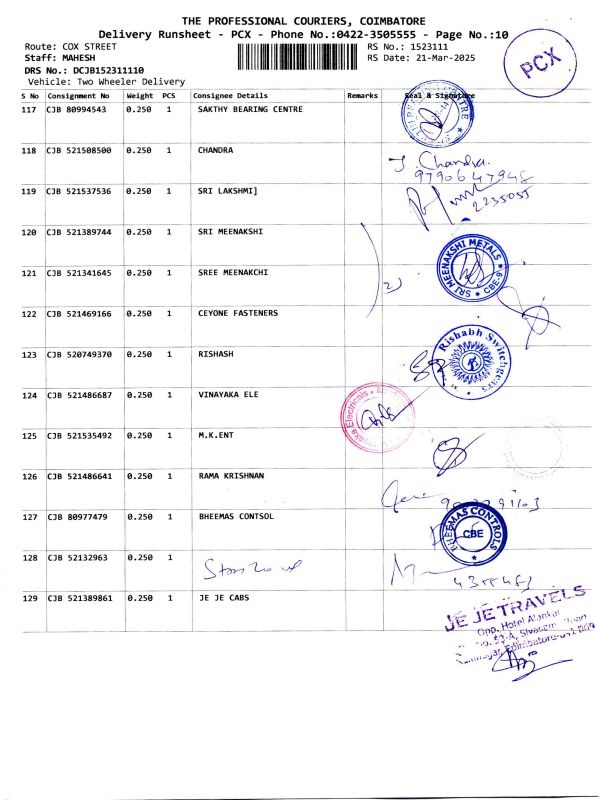 THE PROFESSIONAL COURIERS, COIMBATORE
Delivery Runsheet - PCX - Phone No.:0422-3505555 - Page No.:10
Route: COX STREET
RS No.: 1523111
Staff: MAHESH
RS Date: 21-Mar-2025
DRS No.: DCJB152311110
Vehicle: Two Wheeler Delivery
PCX
S No Consignment No Weight PCS Consignee Details Remarks Seal & Signature
117 CJB 80994543 0.250 1 SAKTHY BEARING CENTRE
118 CJB 521508500 0.250 1 CHANDRA
J. Chandra.
9790647948
119 CJB 521537536 0.250 1 SRI LAKSHMI]
2235055
120 CJB 521389744 0.250 1 SRI MEENAKSHI
SRI MEENAKSHI METALS CBE-9
121 CJB 521341645 0.250 1 SREE MEENAKCHI
2)
122 CJB 521469166 0.250 1 CEYONE FASTENERS
123 CJB 520749370 0.250 1 RISHASH
Rishabh Switchgears
124 CJB 521486687 0.250 1 VINAYAKA ELE
Electricals
125 CJB 521535492 0.250 1 M.K.ENT
126 CJB 521486641 0.250 1 RAMA KRISHNAN
127 CJB 80977479 0.250 1 BHEEMAS CONTSOL
BHEEMAS CONTROLS
CBE
128 CJB 52132963 0.250 1
129 CJB 521389861 0.250 1 JE JE CABS
JE JE TRAVELS
Opp. Hotel Alankar